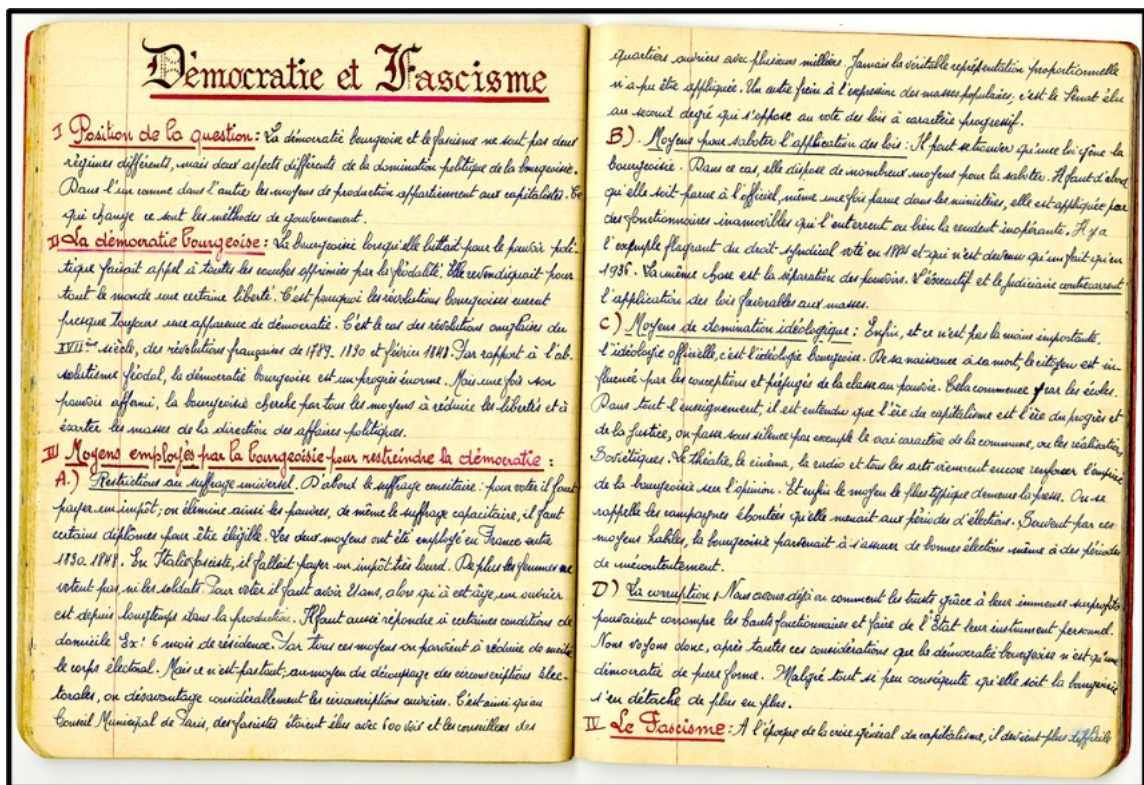 Démocratie et Fascisme
I Position de la question : La démocratie bourgeoise et le fascisme ne sont pas deux
régimes différents, mais deux aspects différents de la domination politique de la bourgeoisie.
Dans l'un comme dans l'autre les moyens de production appartiennent aux capitalistes. Ce
qui change ce sont les méthodes de gouvernement.
II La démocratie bourgeoise : La bourgeoisie lorsqu'elle luttait pour le pouvoir poli-
tique faisait appel à toutes les couches opprimées par la féodalité. Elle revendiquait pour
tout le monde une certaine liberté. C'est pourquoi les révolutions bourgeoises eurent
presque toujours une apparence de démocratie. C'est le cas des révolutions anglaises du
XVIIème siècle, des révolutions françaises de 1789_ 1830 et février 1848. Par rapport à l'ab-
solutisme féodal, la démocratie bourgeoise est un progrès énorme. Mais une fois son
pouvoir affermi, la bourgeoisie cherche par tous les moyens à réduire les libertés et à
écarter les masses de la direction des affaires politiques.
III Moyens employés par la bourgeoisie pour restreindre la démocratie :
A.) Restrictions au suffrage universel. D'abord le suffrage censitaire : pour voter il faut
payer un impôt ; on élimine ainsi les pauvres, de même le suffrage capacitaire, il faut
certains diplômes pour être éligible. Ces deux moyens ont été employé en France entre
1830. 1848. En Italie fasciste, il fallait payer un impôt très lourd. De plus les femmes ne
votent pas, ni les soldats. Pour voter il faut avoir 21 ans, alors qu'à cet âge, un ouvrier
est depuis longtemps dans la production. Il faut aussi répondre à certaines conditions de
domicile Ex: 6 mois de résidence. Par tous ces moyens on parvient à réduire de moitié
le corps électoral. Mais ce n'est pas tout, au moyen du découpage des circonscriptions élec-
torales, on désavantage considérablement les circonscriptions ouvrières. C'est ainsi qu'au
Conseil Municipal de Paris, des fascistes étaient élus avec 600 voix et les conseillers des
quartiers ouvriers avec plusieurs milliers. Jamais la véritable représentation proportionnelle
n'a pu être appliquée. Un autre frein à l'expression des masses populaires, c'est le Sénat élu
au second degré qui s'oppose au vote des lois à caractère progressif.
B). Moyens pour saboter l'application des lois : Il peut se trouver qu'une loi gêne la
bourgeoisie. Dans ce cas, elle dispose de nombreux moyens pour la saboter. Il faut d'abord
qu'elle soit parue à l'officiel, même une fois parue dans les ministères, elle est appliquée par
des fonctionnaires inamovibles qui l'enterrent ou bien la rendent inopérante. Il y a
l'exemple flagrant du droit syndical voté en 1884 et qui n'est devenu qu'un fait qu'en
1936. La même chose est la séparation des pouvoirs. L'exécutif et le judiciaire contrecarrent
l'application des lois favorables aux masses.
C) Moyens de domination idéologique : Enfin, et ce n'est pas la moins importante,
l'idéologie officielle, c'est l'idéologie bourgeoise. De sa naissance à sa mort, le citoyen est in-
fluencé par les conceptions et préjugés de la classe au pouvoir. Cela commence par les écoles.
Dans tout l'enseignement, il est entendu que l'ère du capitalisme est l'ère du progrès et
de la Justice, on passe sous silence par exemple le vrai caractère de la commune, ou les réalisations
Soviétiques. Le théâtre, le cinéma, la radio et tous les arts viennent encore renforcer l'emprise
de la bourgeoisie sur l'opinion. Et enfin le moyen le plus typique demeure la presse. On se
rappelle les campagnes éhontées qu'elle menait aux périodes d'élections. Souvent par ces
moyens habiles, la bourgeoisie parvenait à s'assurer de bonnes élections même à des périodes
de mécontentement.
D) La corruption. Nous avons déjà vu comment les trusts grâce à leur immense surprofits
pouvaient corrompre les hauts fonctionnaires et faire de l'État leur instrument personnel.
Nous voyons donc, après toutes ces considérations que la démocratie bourgeoise n'est qu'une
démocratie de pure forme. Malgré tout si peu conséquente qu'elle soit la bourgeoisie
s'en détache de plus en plus.
IV Le Fascisme : A l'époque de la crise général du capitalisme, il devient plus difficile